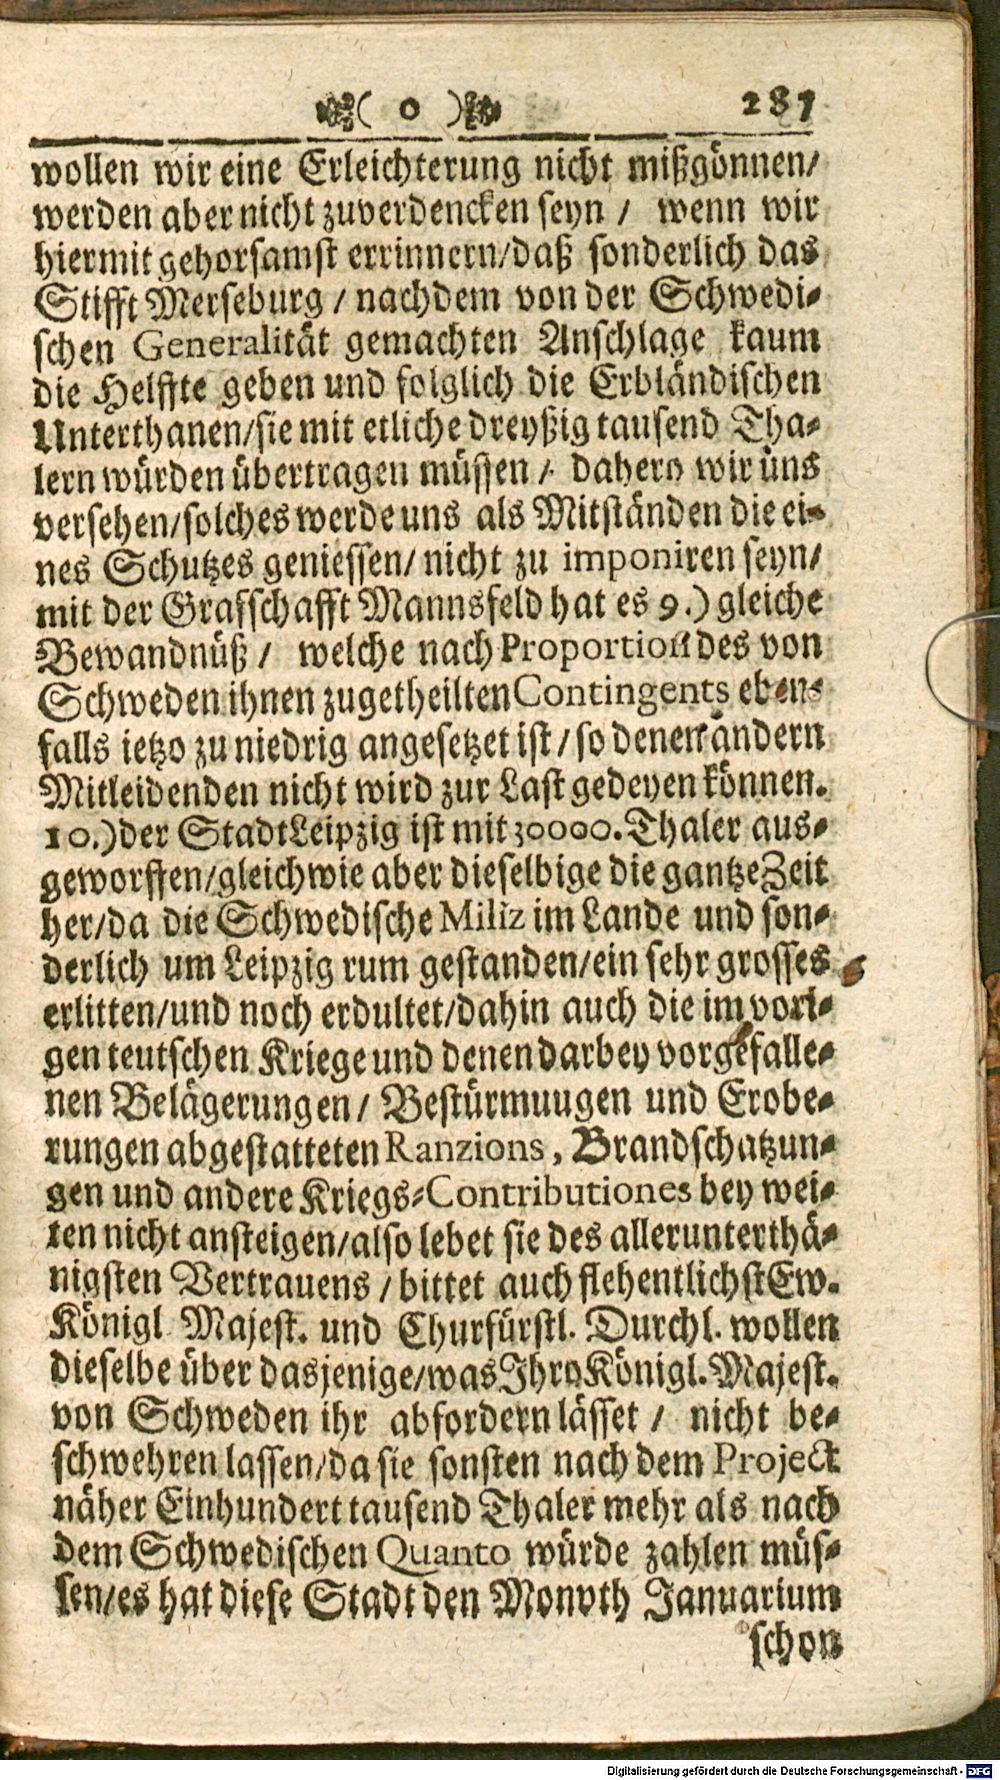 ( o ) 287
wollen wir eine Erleichterung nicht mißgönnen/
werden aber nicht zuverdencken seyn / wenn wir
hiermit gehorsamst errinnern/daß sonderlich das
Stifft Merseburg / nachdem von der Schwedi-
schen Generalität gemachten Anschlage kaum
die Helffte geben und folglich die Erbländischen
Unterthanen/sie mit etliche dreyßig tausend Tha-
lern würden übertragen müssen / dahero wir uns
versehen/solches werde uns als Mitständen die ei-
nes Schutzes geniessen/ nicht zu imponiren seyn/
mit der Grafschafft Mannsfeld hat es 9.) gleiche
Bewandnüß / welche nach Proportion des von
Schweden ihnen zugetheilten Contingents eben-
falls ietzo zu niedrig angesetzet ist / so denen andern
Mitleidenden nicht wird zur Last gedeyen können.
10.) der Stadt Leipzig ist mit 30000. Thaler aus-
geworffen/gleichwie aber dieselbige die gantze Zeit
her/da die Schwedische Miliz im Lande und son-
derlich um Leipzig rum gestanden/ein sehr grosses
erlitten/und noch erdultet/dahin auch die im vori-
gen teutschen Kriege und denen darbey vorgefalle-
nen Belägerungen/ Bestürmuugen und Erobe-
rungen abgestatteten Ranzions, Brandschatzun-
gen und andere Kriegs-Contributiones bey wei-
ten nicht ansteigen/also lebet sie des allerunterthä-
nigsten Vertrauens / bittet auch flehentlichst Ew.
Königl Majest. und Churfürstl. Durchl. wollen
dieselbe über dasjenige/was Ihro Königl. Majest.
von Schweden ihr abfordern lässet / nicht be-
schwehren lassen/da sie sonsten nach dem Project
näher Einhundert tausend Thaler mehr als nach
dem Schwedischen Quanto würde zahlen müs-
sen/es hat diese Stadt den Monoth Januarium
schon
Digitalisierung gefördert durch die Deutsche Forschungsgemeinschaft - DFG